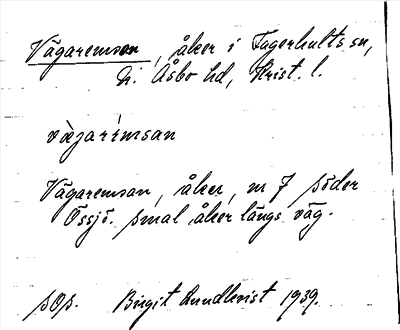 Vägaremsan, åker i Fagerhults sn,
N. Åsbo hd, Krist. l.
vägarimsan
Vägaremsan, åker, nr 7 söder
Össjö. smal åker längs väg.
sOp. Birgit Lundkvist 1939.